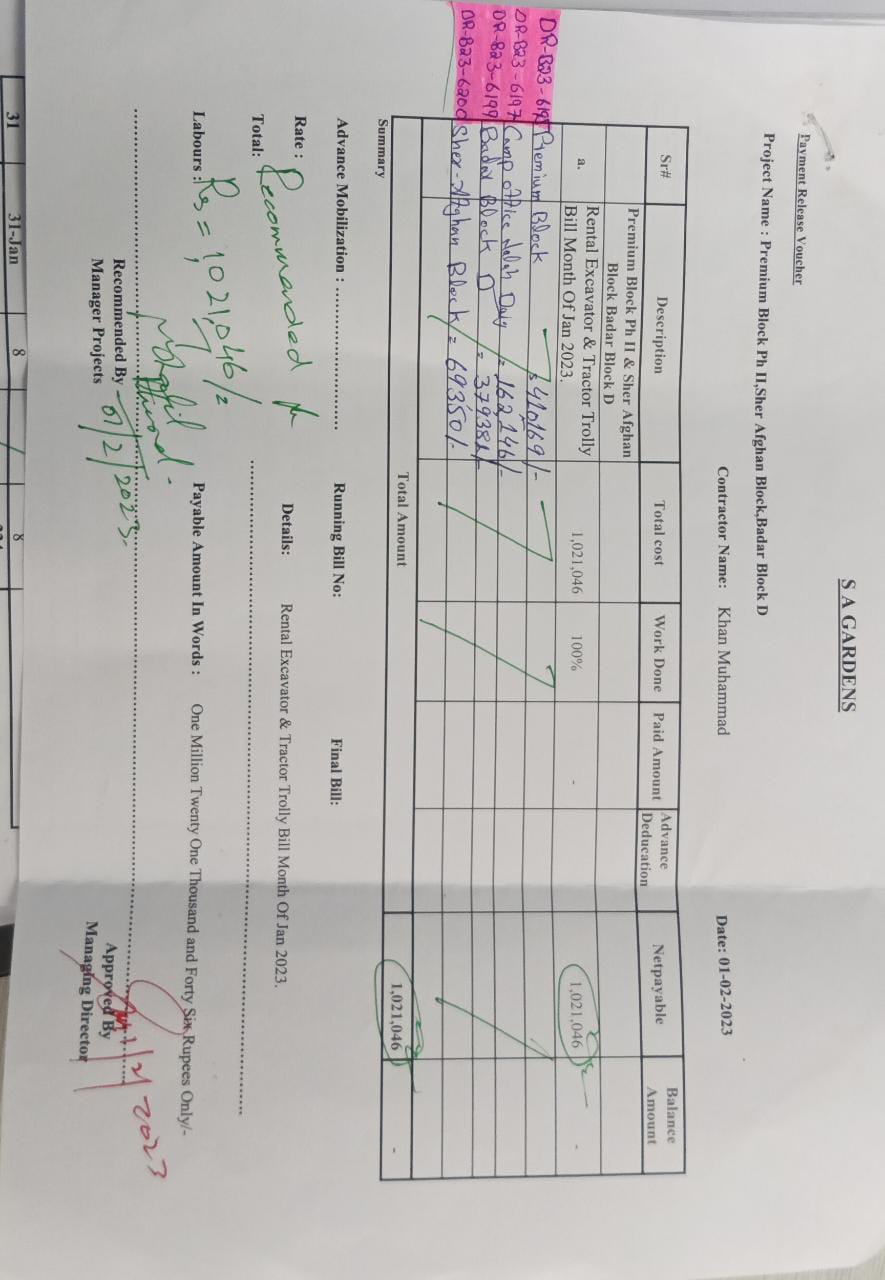 S A GARDENS
Payment Release Voucher
Project Name : Premium Block Ph II,Sher Afghan Block,Badar Block D
Contractor Name: Khan Muhammad Date: 01-02-2023
Sr# Description Total cost Work Done Paid Amount Advance Deducation Netpayable Balance Amount
Premium Block Ph II & Sher Afghan
Block Badar Block D
a. Rental Excavator & Tractor Trolly
Bill Month Of Jan 2023. 1,021,046 100% - 1,021,046 -
DR-B23-6198 Premium Block = 410169/-
DR-B23-6197 Camp office Daig = 162146/-
DR-B23-6199 Badar Block D = 379381/-
DR-B23-6200 Sher-Afghan Block = 69350/-
Total Amount 1,021,046 -
Summary
Advance Mobilization : .................... Running Bill No: Final Bill:
Rate : Details: Rental Excavator & Tractor Trolly Bill Month Of Jan 2023.
Recommended
Total:
Labours : Payable Amount In Words : One Million Twenty One Thousand and Forty Six Rupees Only/-
Rs = 1021,046/=
Recommended By
Manager Projects
01/2/2023.
Approved By
Managing Director
1/2/2023
31 31-Jan 8 8